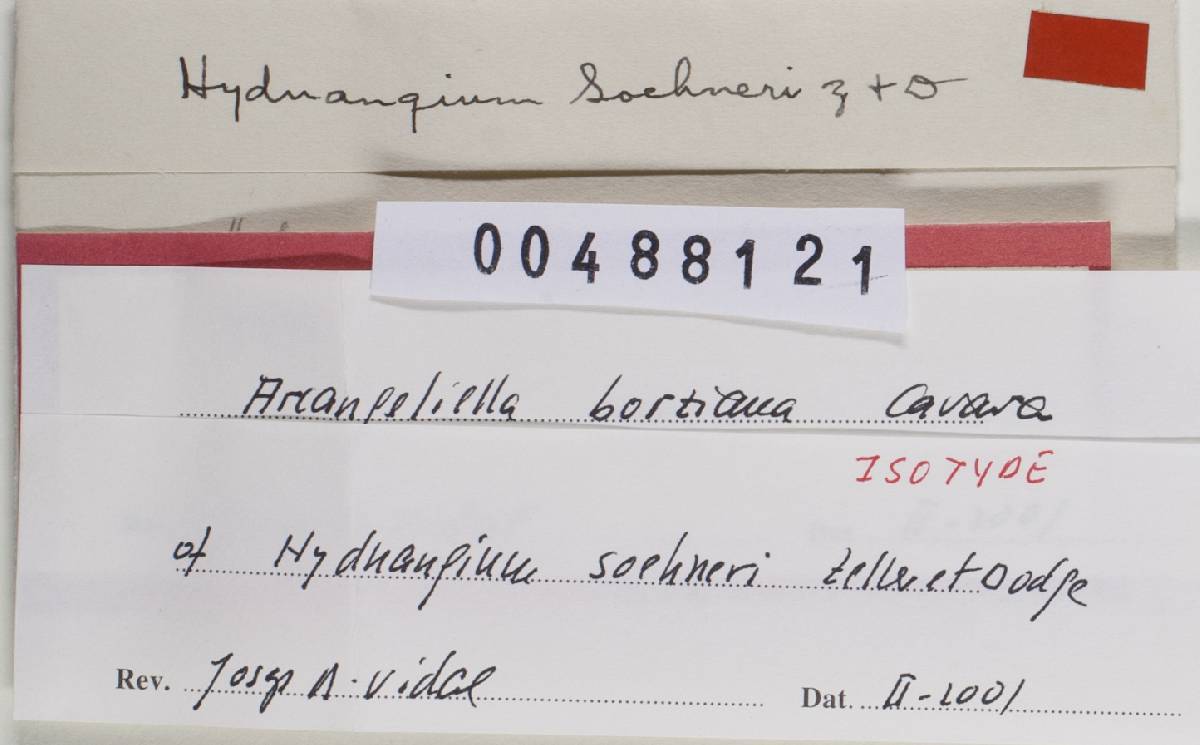 Hydnangium Soehneri Z + D
00488121
Arcangeliella borziana Cavara
ISOTYPE
of Hydnangium soehneri Zeller et Dodge
Rev. Josep M. Vidal Dat. II-2001